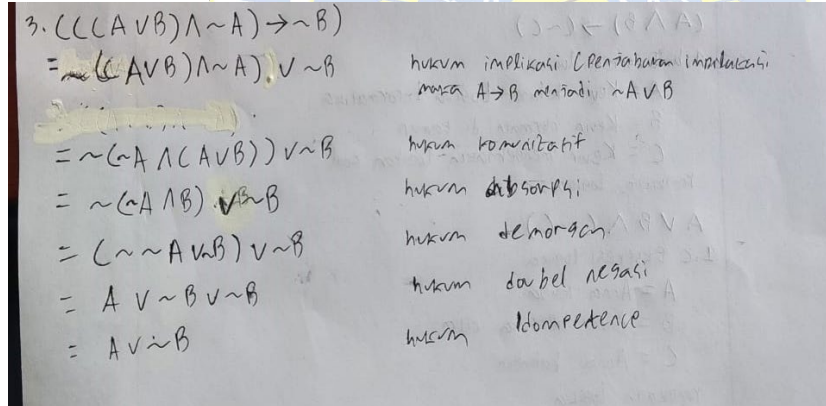 3. (((A ∨ B) ∧ ~A) → ~B)
= ~((A ∨ B) ∧ ~A) ∨ ~B hukum implikasi (Penjabaran implikasi
maka A → B menjadi ~A ∨ B
= ~(~A ∧ (A ∨ B)) ∨ ~B hukum komunitatif
= ~(~A ∧ B) ∨ ~B hukum absorpsi
= (~~A ∨ ~B) ∨ ~B hukum demorgan
= A ∨ ~B ∨ ~B hukum dobel negasi
= A ∨ ~B hukum Idompetence